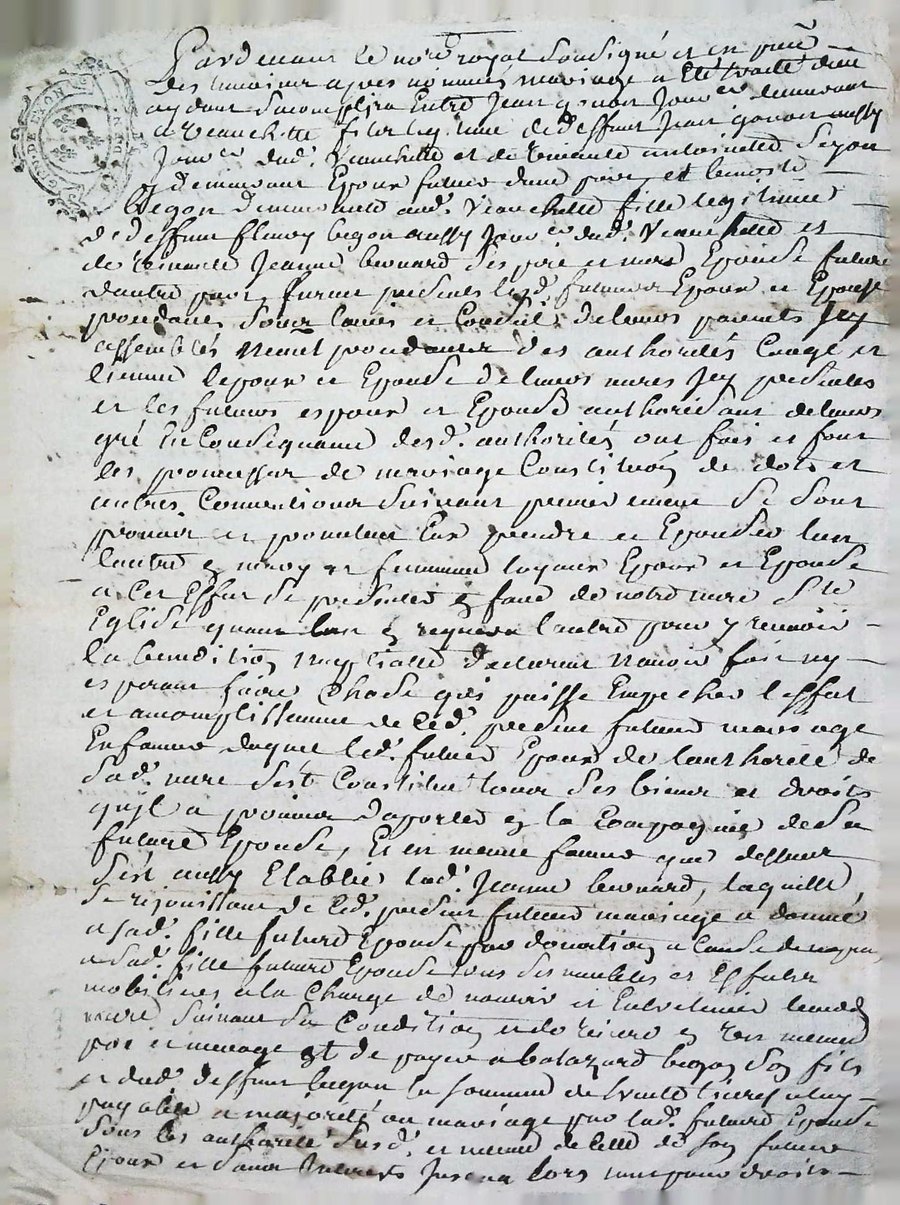 Pardevant le no.re royal soussigné et en pnce
des tmoins apres nommés mariage a été traité dieu
aydant saccomplira Entre Jean gonon Jour.er demeurant
a Veauchette fils legitime de deffunt Jean gonon aussy
Jour.er dud. Veauchette et de vivante antoinette
y demeurant Epoux futeur dune part et benoitte
begon demeurante aud. Veauchette fille legitime
de deffunt fleury begon aussy Jour.er dud. Veauchette et
de vivante Jeanne bernard ses pere et mere Epouse future
dautre part, furent presents lesd. futeurs Epoux et Epouse
procedants sous lavis et Conseil de leurs parents Icy
assemblés mesme procedants des authorités Enage et
lepoux et Epouse de leurs meres Icy presentes
et les futeurs espoux et Epouse authorisant de leurs
gré En Consequance desd. authorités ont fais et font
les promesses de mariage Constitu[ti]on de dots et
autres Conventions suivant premierement se sont
promis et promettent Eux prendre et Epouser lun
lautre en mary et femme loyaux Epoux et Epouse
a Cet Effet se presenter en face de notre mere ste
Eglise quant lun en requera lautre pour y recevoir
la benediction Nuptialle declarent navoir fais ny
esperant faire Chose qui puisse Empecher l'effet
et accomplissement de Ced. present futeur mariage
En faveur duquel led. futeur Epoux de lauthorité de
sad. mere sest Constitué tous ses biens et droits
quyl a promis daporter en la Compagnie de sa
future Epouse, Et en meme faveur que dessus
sest aussy Etablie lad. Jeanne bernard, laquelle,
se rejouissant de Ced. present futeur mariage a donné
a sad. fille future Epouse par donation a Cause de
a sad. fille future Epouse tous ses meubles et Effets
mobiliers a la Charge de nourir et Entretenir lad.
mere suivant sa Condition et de vivre en un meme
pot et menage et de payer a balazard begon son fils
et dud. deffunt begon la somme de trente livres a luy
payable a majorité ou mariage par lad. future Epouse
sous les authorité susd. et meme de Celle de son futeur
Epoux et sans Interests jusqua lors tant pour droits